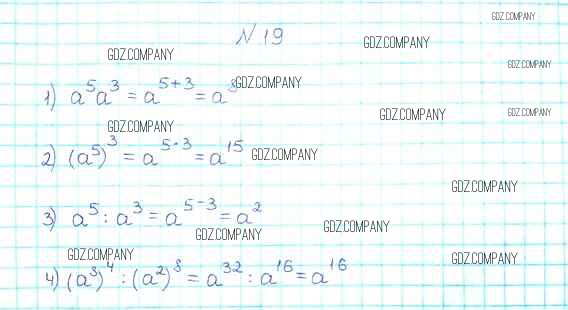 GDZ.COMPANY
№ 19
GDZ.COMPANY
GDZ.COMPANY
GDZ.COMPANY
1) a⁵a³ = a⁵⁺³ = a⁸
GDZ.COMPANY
GDZ.COMPANY
GDZ.COMPANY
GDZ.COMPANY
2) (a⁵)³ = a⁵·³ = a¹⁵
GDZ.COMPANY
GDZ.COMPANY
3) a⁵ : a³ = a⁵⁻³ = a²
GDZ.COMPANY
GDZ.COMPANY
GDZ.COMPANY
GDZ.COMPANY
4) (a⁸)⁴ : (a²)⁸ = a³² : a¹⁶ = a¹⁶